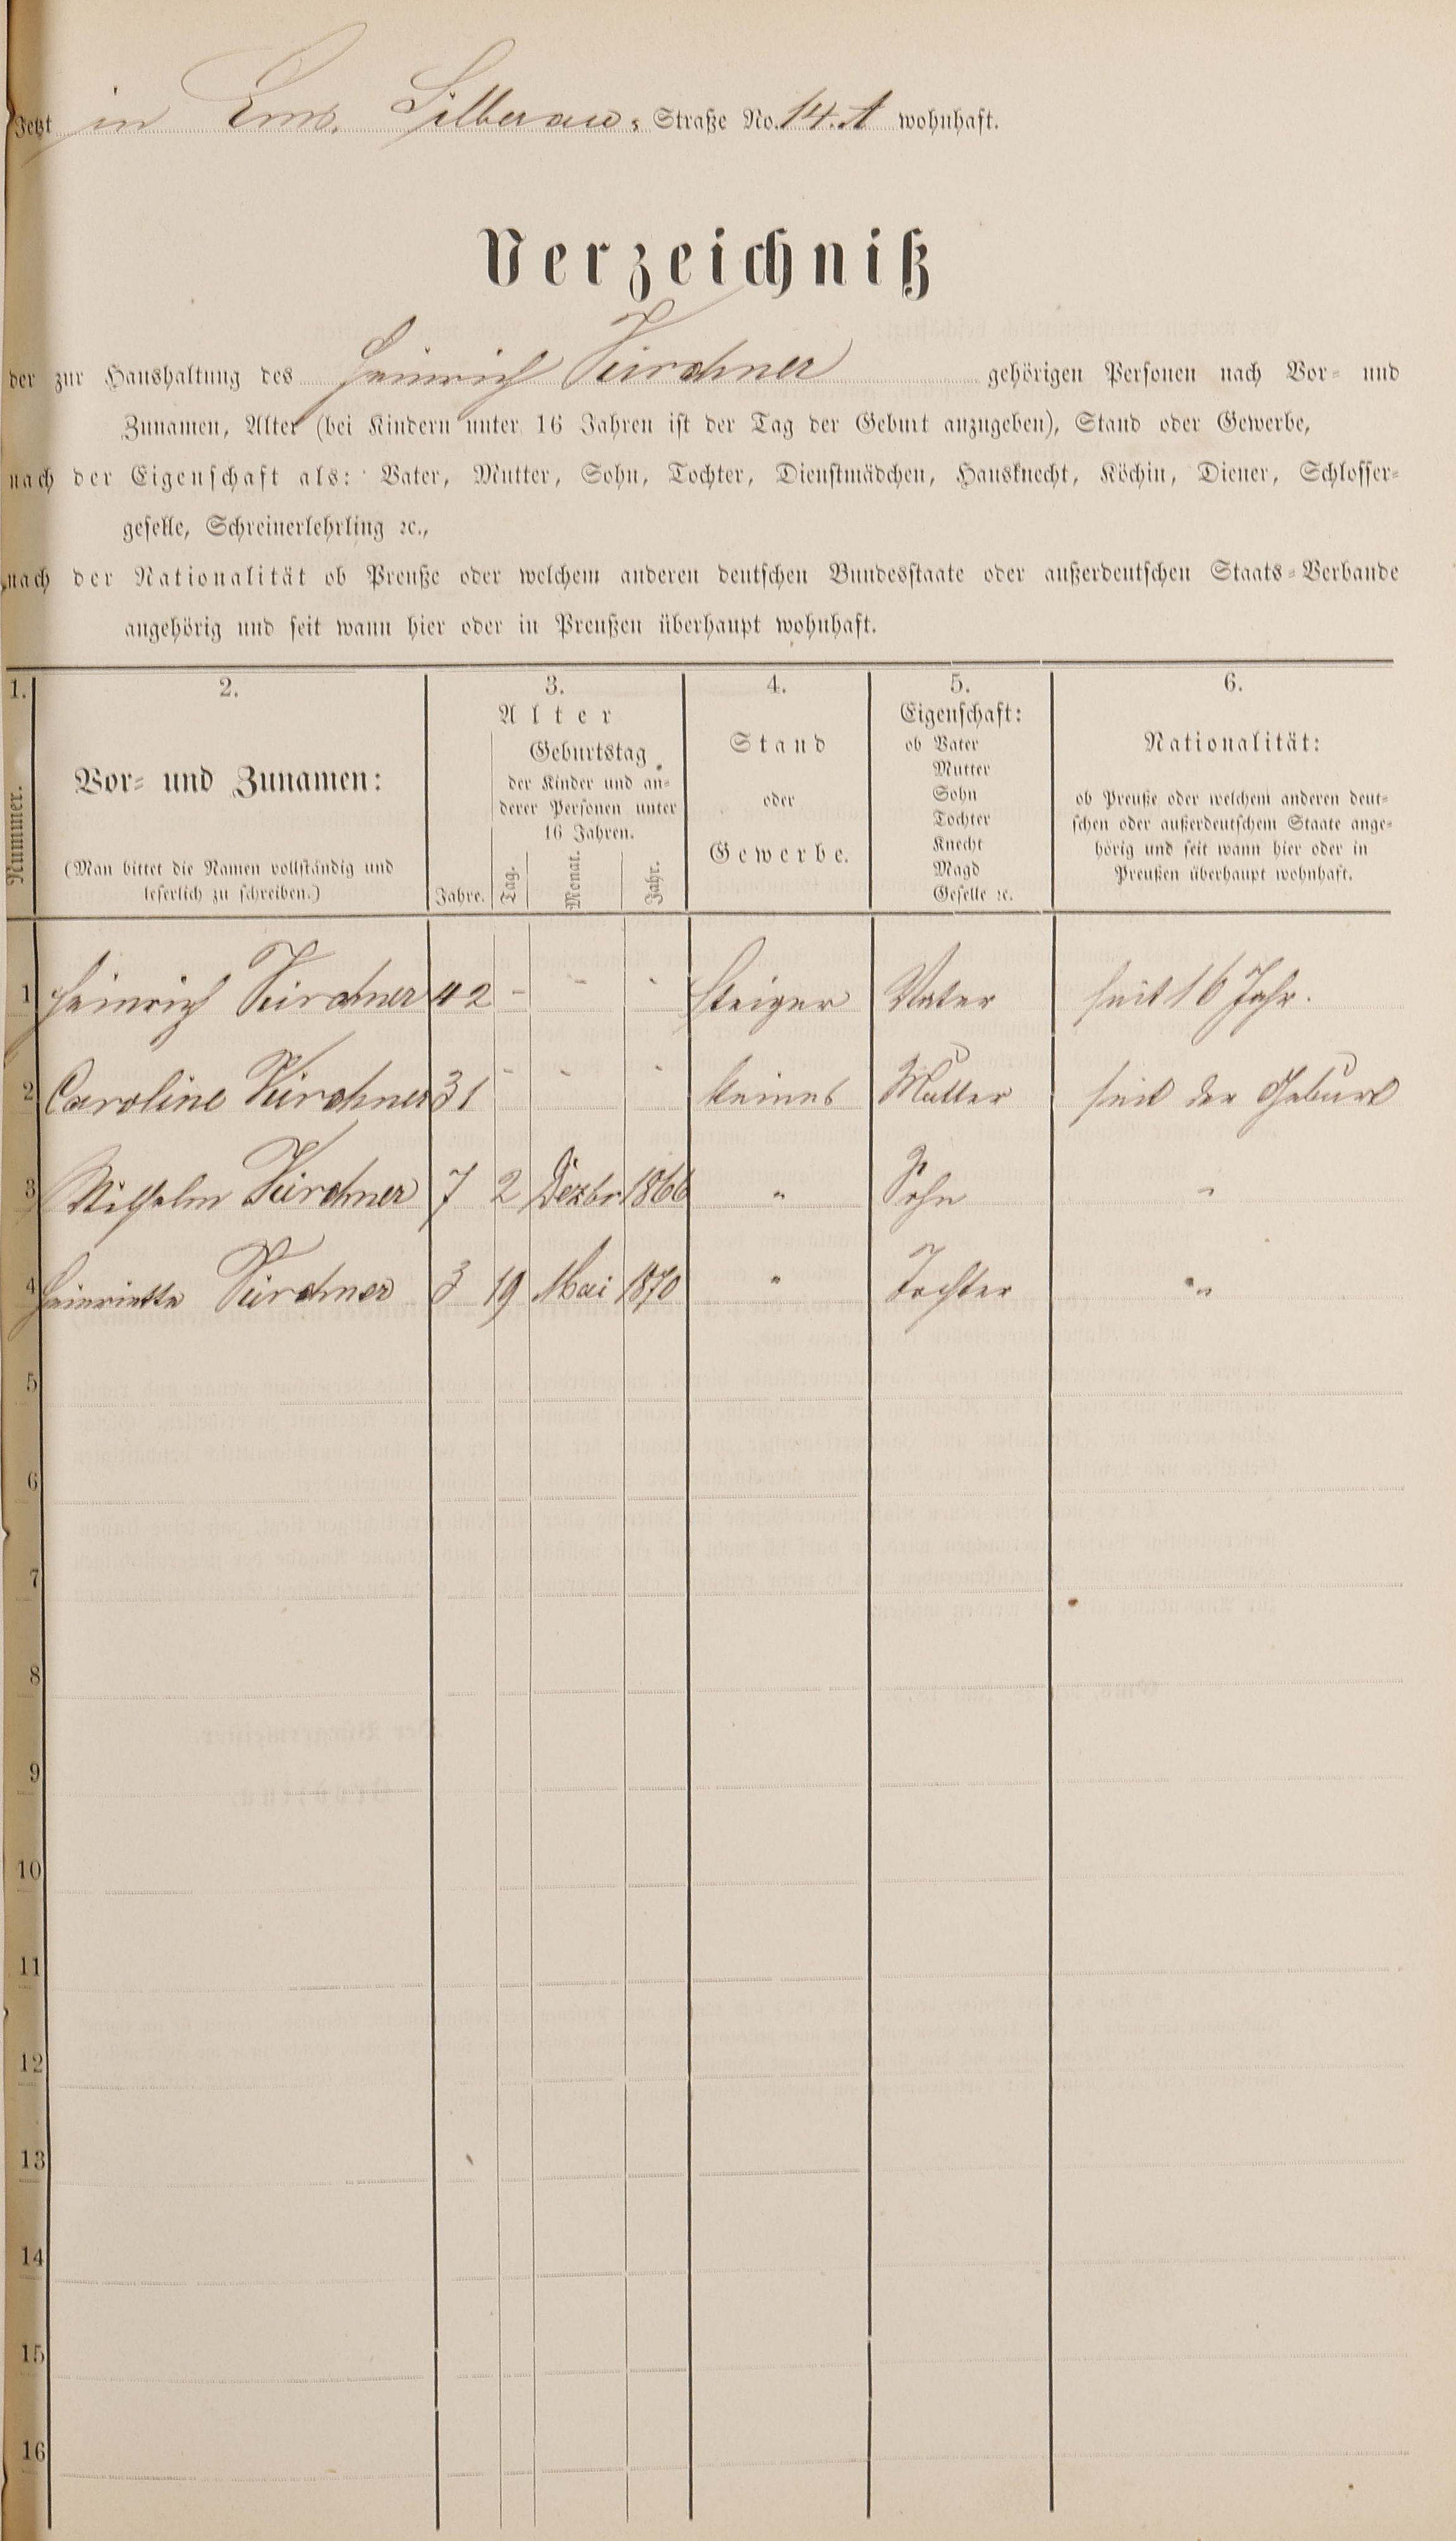 Jetzt in Ems, Silberau, Straße No. 14. A wohnhaft.
Verzeichniß
der zur Haushaltung des Heinrich Kirchner gehörigen Personen nach Vor- und
Zunamen, Alter (bei Kindern unter 16 Jahren ist der Tag der Geburt anzugeben), Stand oder Gewerbe,
nach der Eigenschaft als: Vater, Mutter, Sohn, Tochter, Dienstmädchen, Hausknecht, Köchin, Diener, Schlosser-
geselle, Schreinerlehrling ꝛc.,
nach der Nationalität ob Preuße oder welchem anderen deutschen Bundesstaate oder außerdeutschen Staats-Verbande
angehörig und seit wann hier oder in Preußen überhaupt wohnhaft.
1. 2. 3. 4. 5. 6.
Nummer.
Vor- und Zunamen:
(Man bittet die Namen vollständig und
leserlich zu schreiben.)
Alter
Jahre.
Geburtstag
der Kinder und an-
derer Personen unter
16 Jahren.
Tag. Monat. Jahr.
Stand
oder
Gewerbe.
Eigenschaft:
ob Vater
Mutter
Sohn
Tochter
Knecht
Magd
Geselle ꝛc.
Nationalität:
ob Preuße oder welchem anderen deut-
schen oder außerdeutschem Staate ange-
hörig und seit wann hier oder in
Preußen überhaupt wohnhaft.
1 Heinrich Kirchner 42 - - - Steiger Vater seit 16 Jahr.
2 Caroline Kirchner 31 - - - keines Mutter seit der Geburt
3 Wilhelm Kirchner 7 2 Dezbr 1866 " Sohn "
4 Heinriette Kirchner 3 19 Mai 1870 " Tochter "
5
6
7
8
9
10
11
12
13
14
15
16